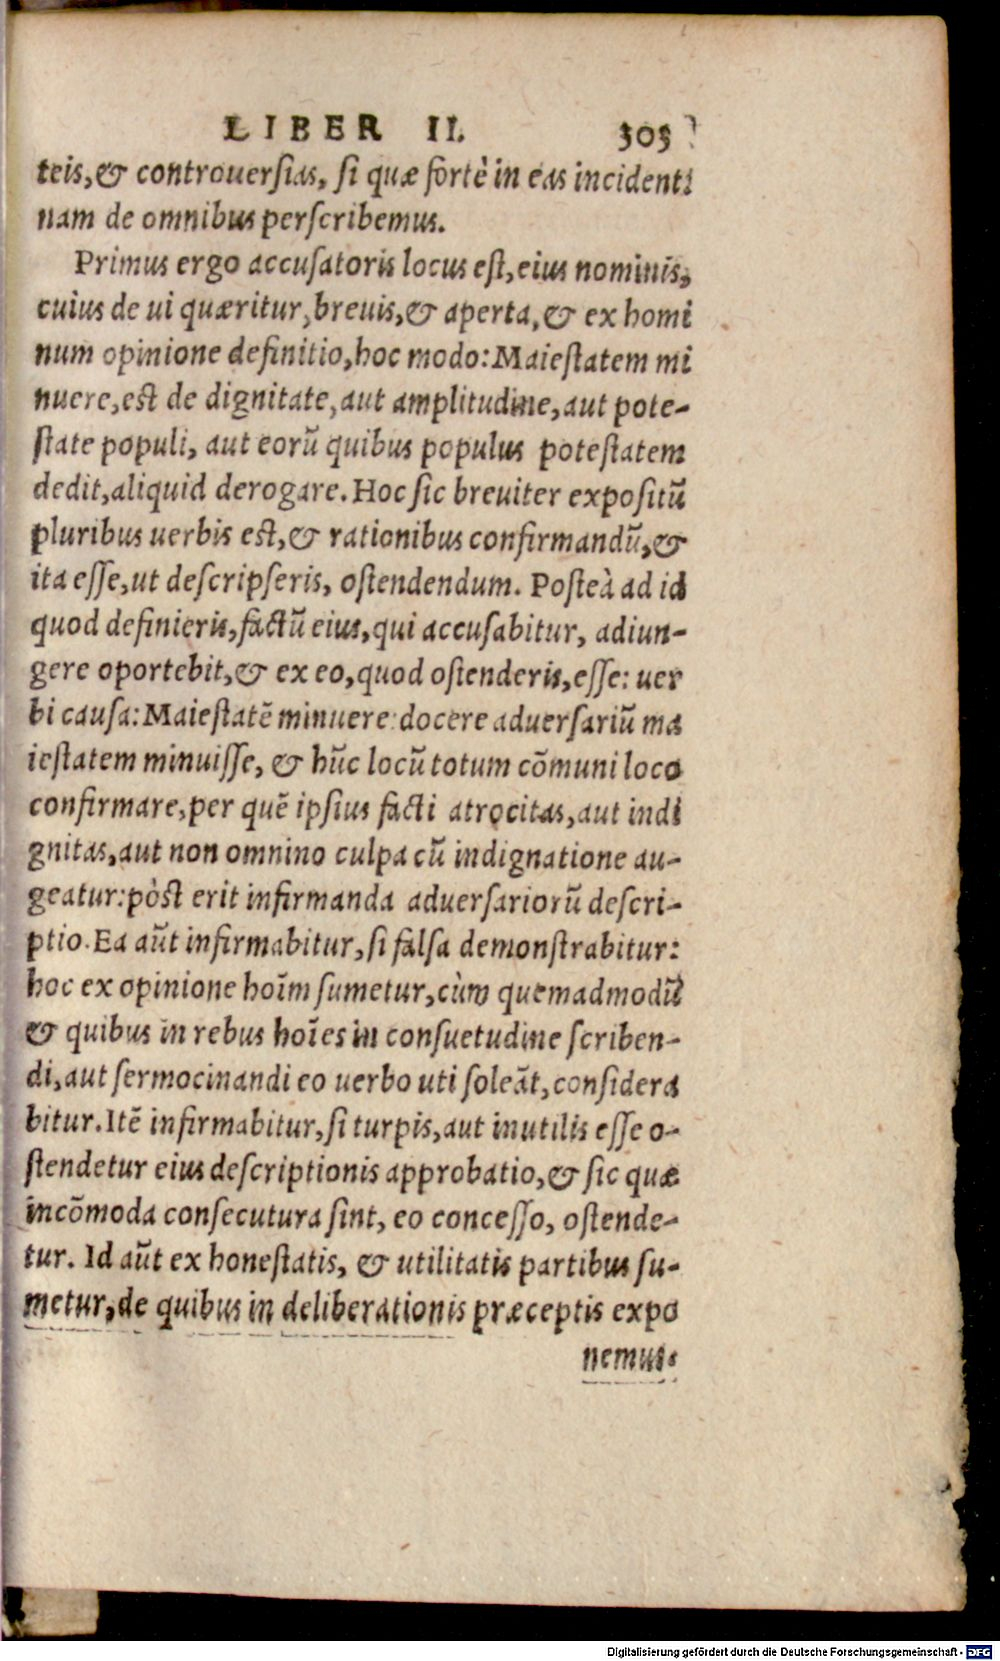 LIBER II. 303
teis,& controuersias, si quæ fortè in eas incidenti
nam de omnibus perscribemus.
Primus ergo accusatoris locus est,eius nominis,
cuius de ui quæritur,breuis,& aperta,& ex homi
num opinione definitio,hoc modo:Maiestatem mi
nuere,est de dignitate,aut amplitudine,aut pote-
state populi, aut eorū quibus populus potestatem
dedit,aliquid derogare.Hoc sic breuiter expositū
pluribus uerbis est,& rationibus confirmandū,&
ita esse,ut descripseris, ostendendum. Posteà ad id
quod definieris,factū eius,qui accusabitur, adiun-
gere oportebit,& ex eo,quod ostenderis,esse: uer
bi causa:Maiestatē minuere:docere aduersariū ma
iestatem minuisse, & hūc locū totum cōmuni loco
confirmare,per quē ipsius facti atrocitas,aut indi
gnitas,aut non omnino culpa cū indignatione au-
geatur:pòst erit infirmanda aduersariorū descri-
ptio.Ea aūt infirmabitur,si falsa demonstrabitur:
hoc ex opinione hoīm sumetur,cùm quemadmodū
& quibus in rebus hoīes in consuetudine scriben-
di,aut sermocinandi eo uerbo uti soleāt,considera
bitur.Itē infirmabitur,si turpis,aut inutilis esse o-
stendetur eius descriptionis approbatio,& sic quæ
incōmoda consecutura sint, eo concesso, ostende-
tur. Id aūt ex honestatis, & utilitatis partibus su-
metur,de quibus in deliberationis præceptis expo
nemus.
Digitalisierung gefördert durch die Deutsche Forschungsgemeinschaft - DFG